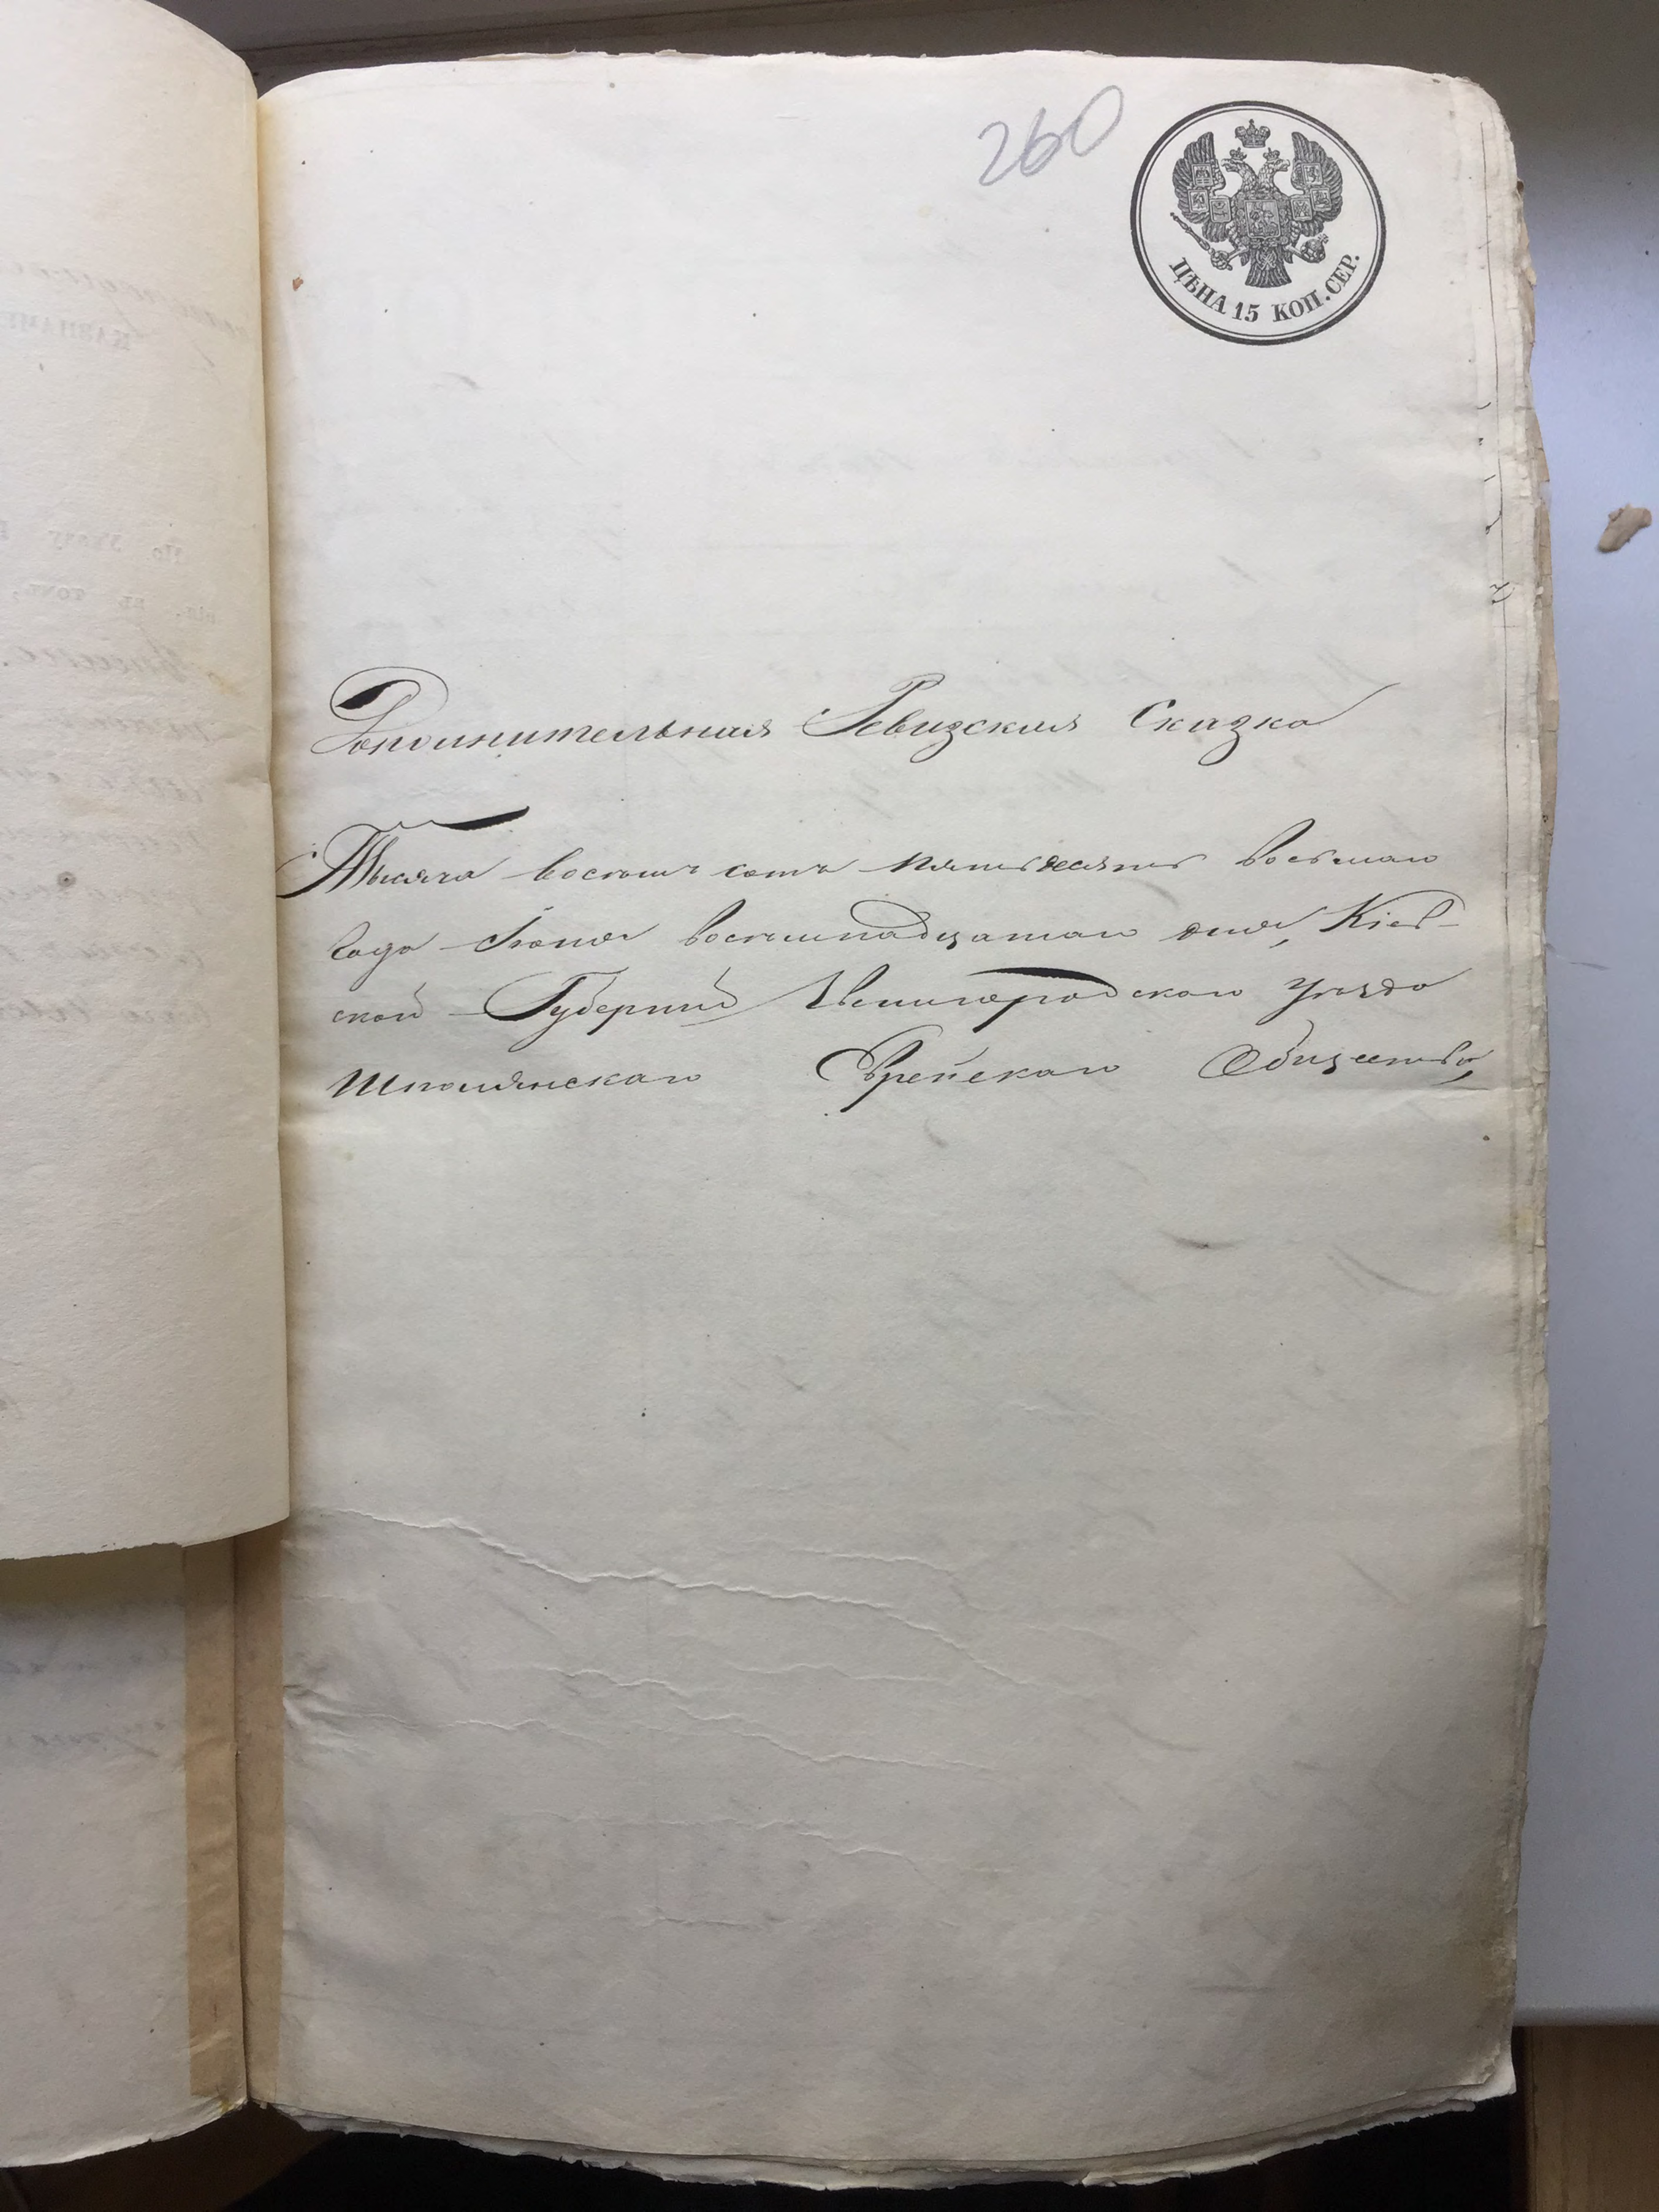 260
ЦѢНА 15 КОП. СЕР.
Дополнительная Ревизская Сказка
Тысяча восемь сотъ пятьдесятъ восьмаго
года Іюня восемнадцатаго дня, Кіев-
ской Губерніи Звенигородскаго Уѣзда
Шполянскаго Еврейскаго Общества,